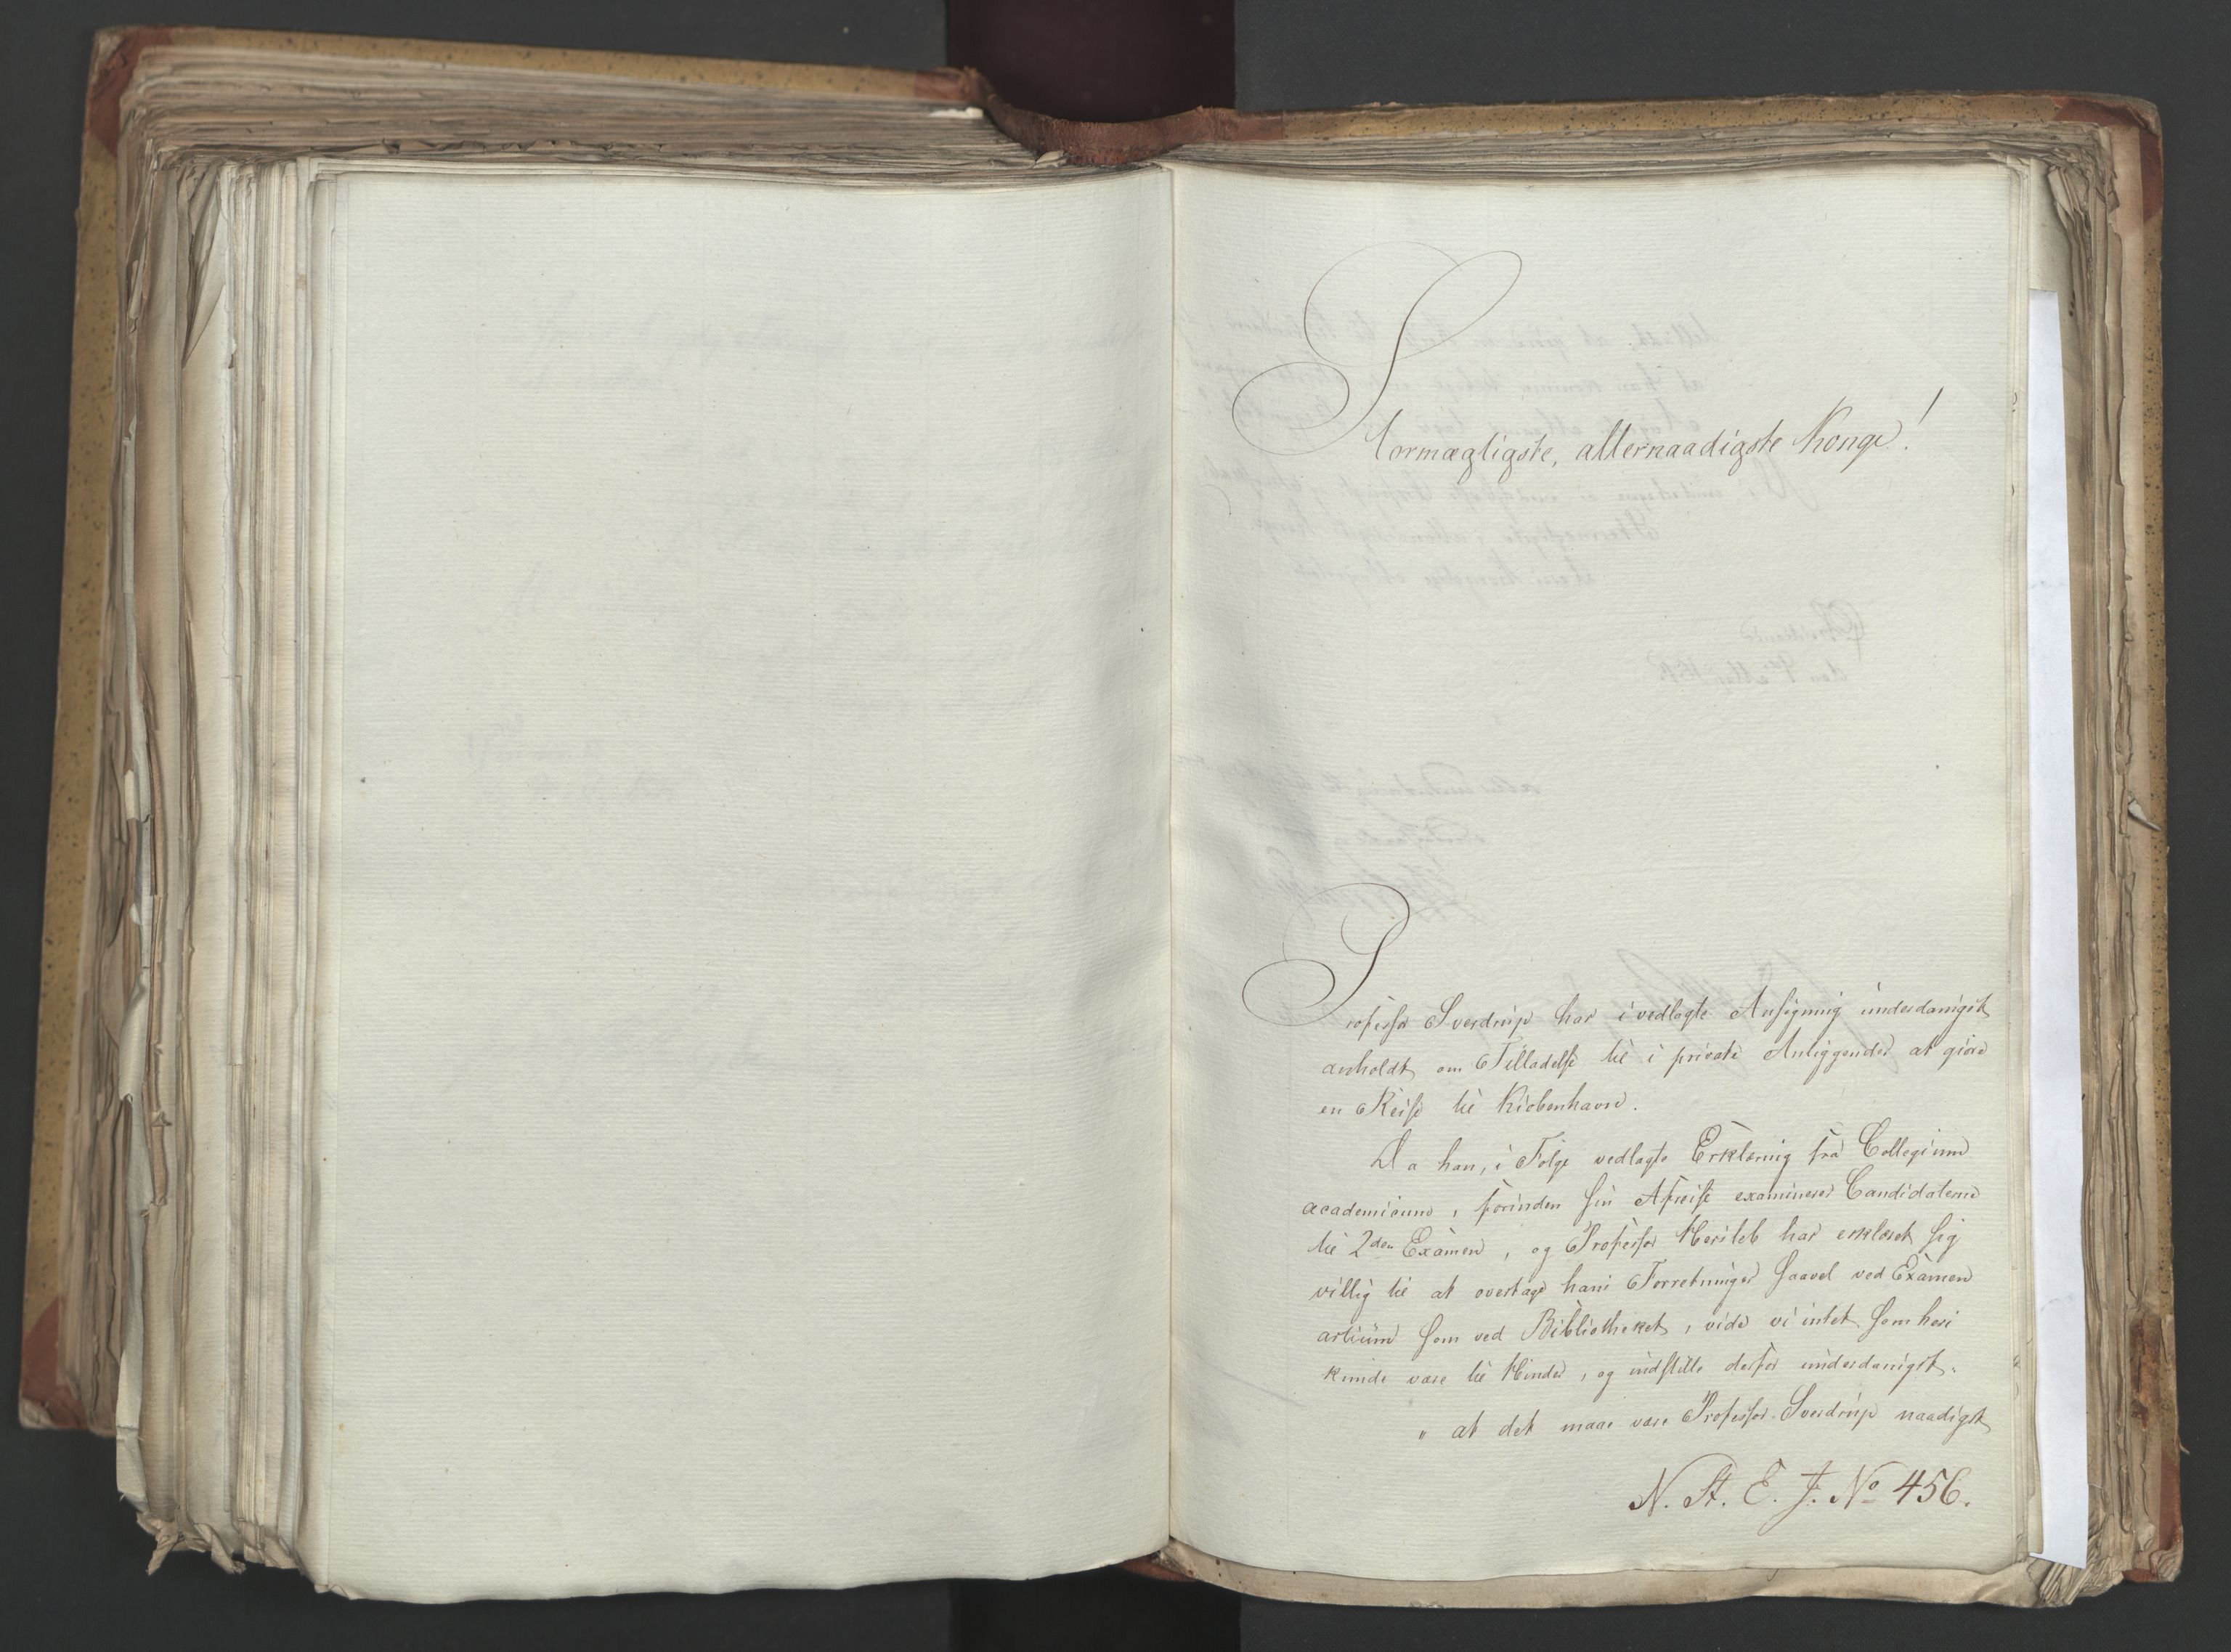 Stormægtigste, allernaadigste Konge!
Professor Sverdrup har i vedlagte Ansøgning underdanigst
anholdt om Tilladelse til i private Anliggender at giøre
en Reise til Kiøbenhavn.
Da han, i Følge vedlagte Erklæring fra Collegium
academicum, forinden sin Afreise examinerer Candidaterne
til 2den Examen, og Professor Hersleb har erklæret sig
villig til at overtage hans Forretninger saavel ved Examen
artium som ved Bibliotheket, vide vi intet som heri
kunde være til Hinder, og indstille derfor underdanigst:
" at det maae være Professor Sverdrup naadigst
N. St. E. J. No 456.